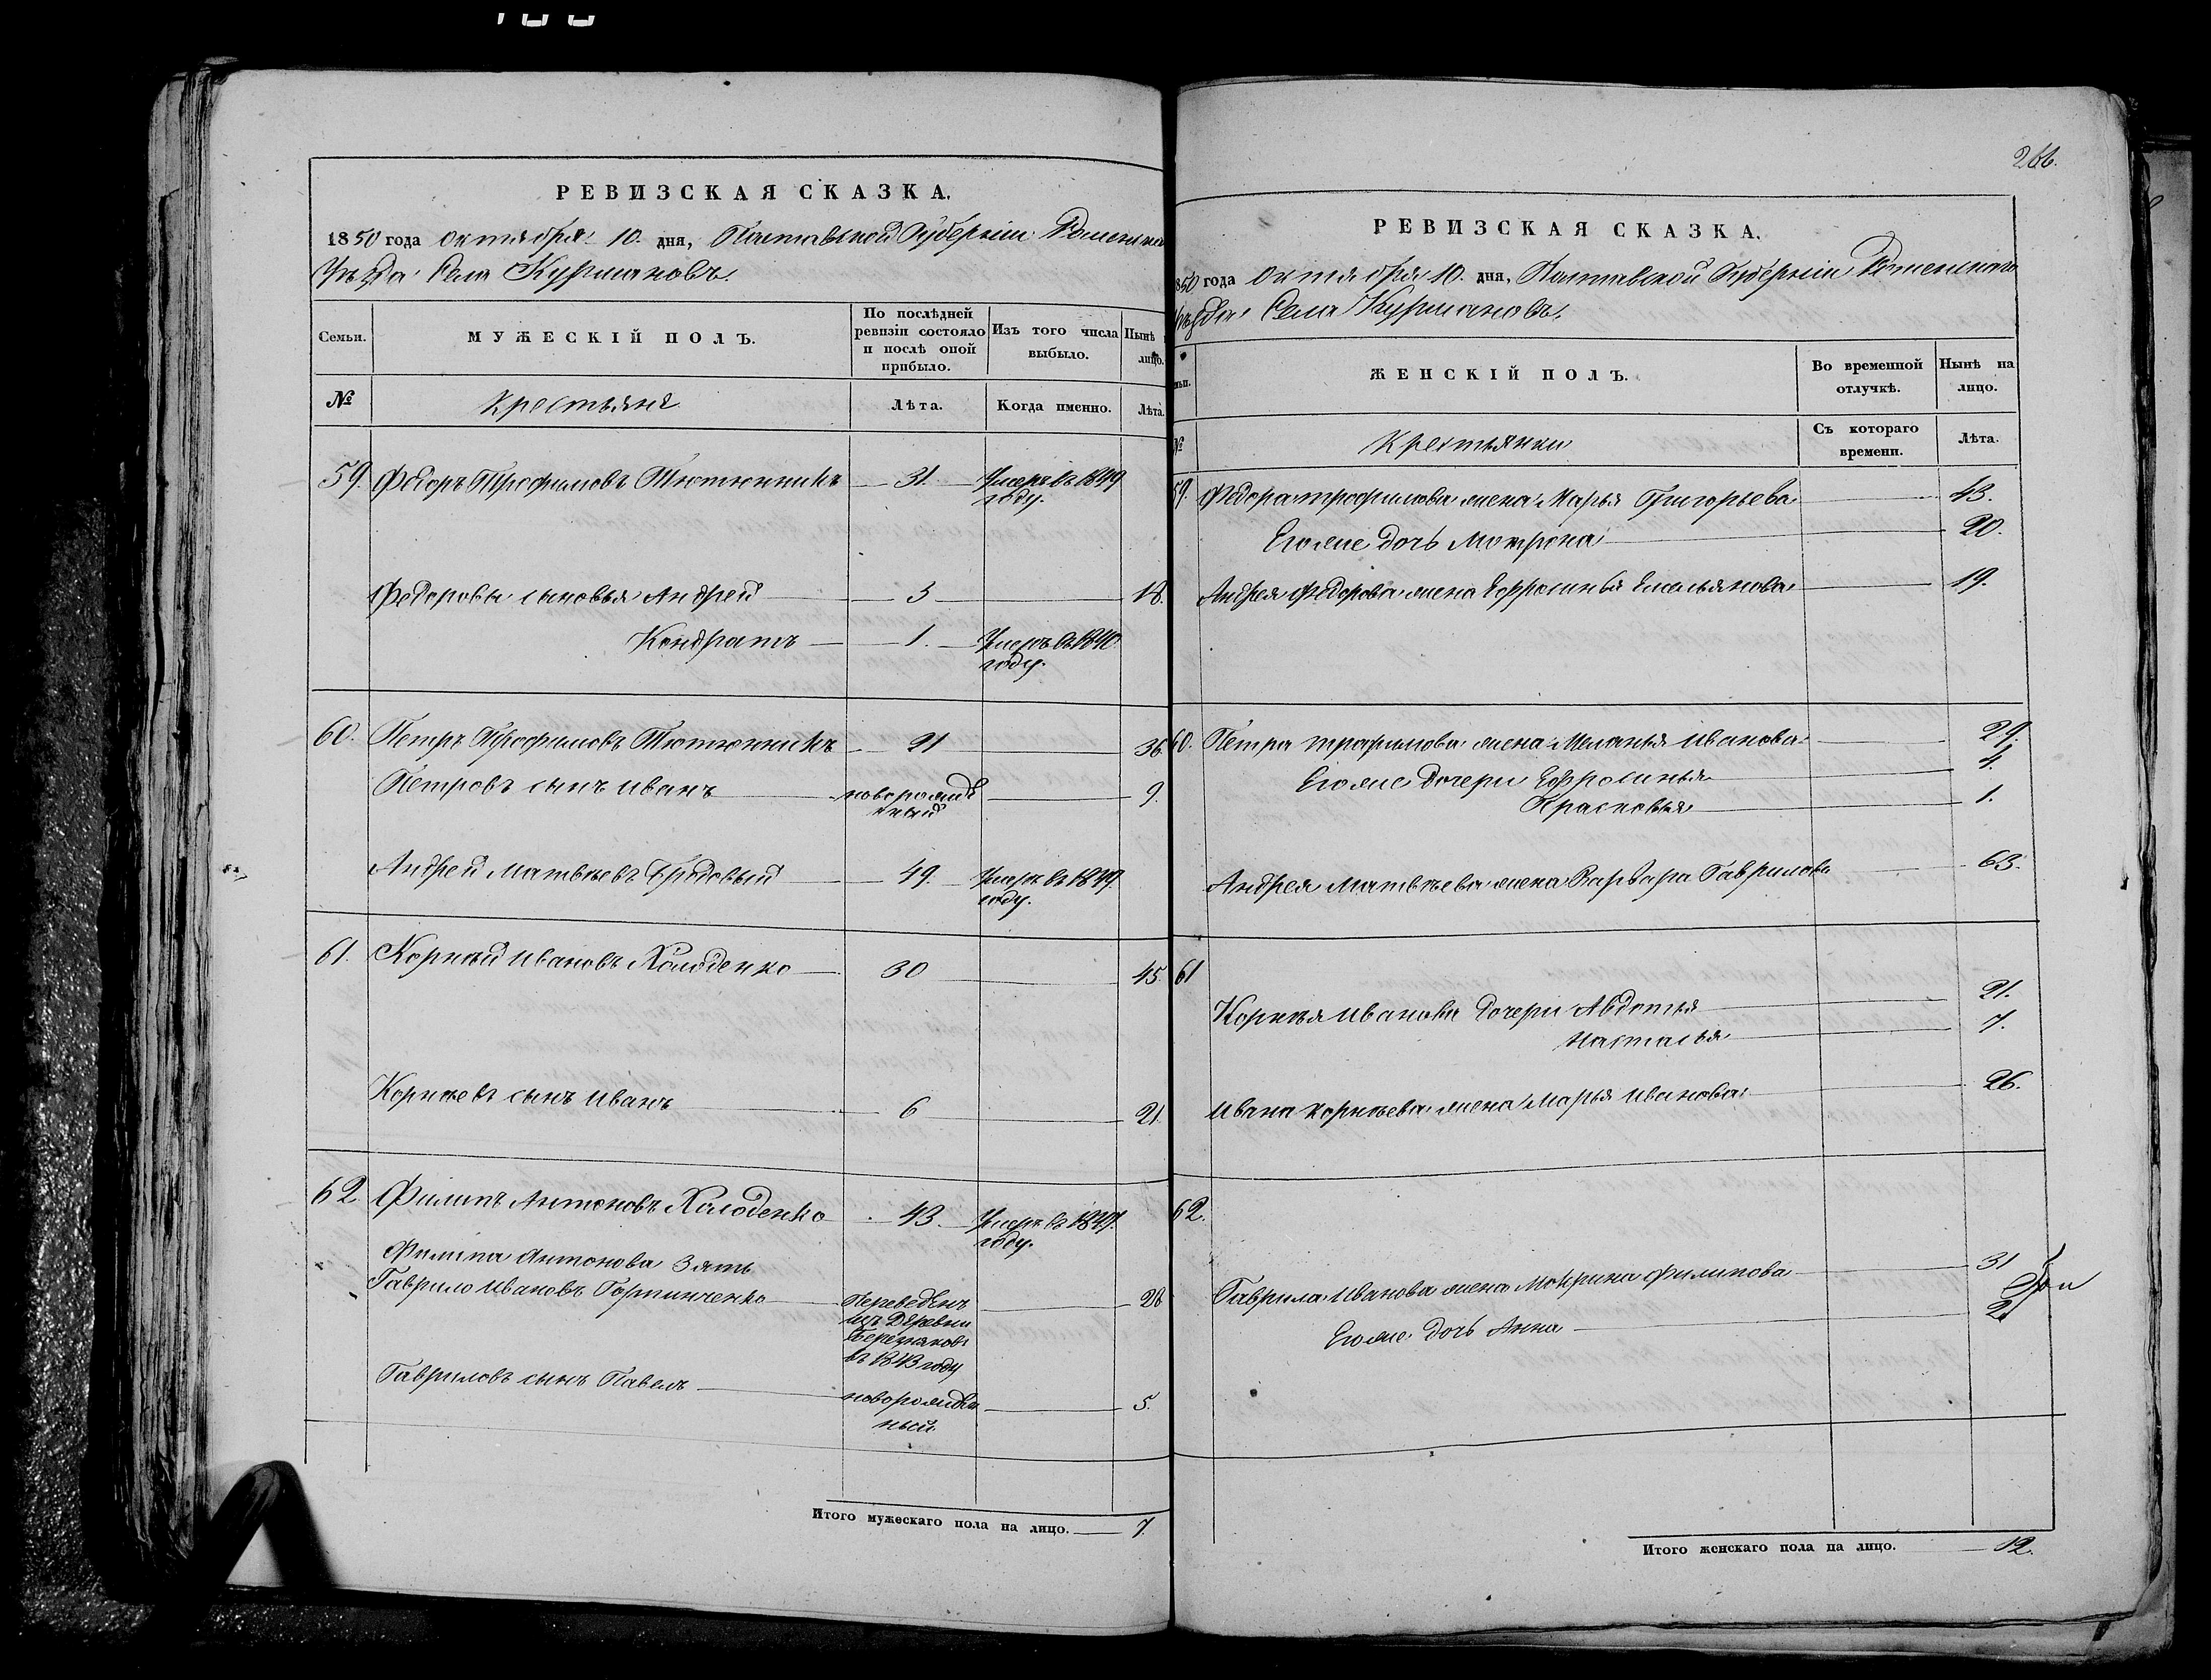 РЕВИЗСКАЯ СКАЗКА.
1850 года октября 10. дня, Полтавской Губерніи Роменскаго
Уезда Села Курмановъ.
Семьи.
МУЖЕСКІЙ ПОЛЪ.
По послѣдней ревизіи состояло и послѣ оной прибыло.
Изъ того числа выбыло.
Нынѣ
лицо.
№
Крестьяне
Лѣта.
Когда именно.
Лѣта.
59. Федоръ Трофимовъ Тютюнникъ 31. Умеръ въ 1849
году.
Федоровы сыновья Андрей 3 18.
Кондратъ 1. Умеръ въ 1840
году.
60. Петръ Трофимовъ Тютюнникъ 21 36
Петровъ сынъ Иванъ новорожде
нный 9.
Андрей Матвѣевъ 49. Умеръ въ 1849
году.
61. Корнѣй Ивановъ Холоденко 30 45.
Корнѣевъ сынъ Иванъ 6 21.
62. Филипъ Антоновъ Холоденко 43. Умеръ въ 1847.
году.
Филипа Антонова Зять
Гаврило Ивановъ Горпинченко Переведенъ 28
изъ Деревни
въ 1843 году
Гавриловъ сынъ Павелъ новорожден
ный. 5.
Итого мужескаго пола на лицо. 7
266.
РЕВИЗСКАЯ СКАЗКА.
850 года Октября 10. дня, Полтавской Губерніи Роменскаго
Уезда Села Курмановъ.
ЖЕНСКІЙ ПОЛЪ.
Во временной отлучкѣ.
Нынѣ на лицо.
№
Крестьянки
Съ котораго времени.
Лѣта.
59. Федора трофимова жена Марья Григорьева 43.
Его же дочь Мотрона 20.
Андрея Федорова жена Ефросинья Емельянова 19.
60. Петра трофимова жена Меланья Иванова 29.
Его же дочери Ефросинья 4.
Прасковья 1.
Андрея Матвѣева жена Варвара Гаврилова 63.
61
Корнѣя Иванова дочери Авдотья 21.
Наталья 7.
Ивана корнѣева жена Марья Иванова 26.
62.
Гаврила Иванова жена Мокрина Филипова 31
Его же дочь Анна 2
Итого женскаго пола на лицо. 12.